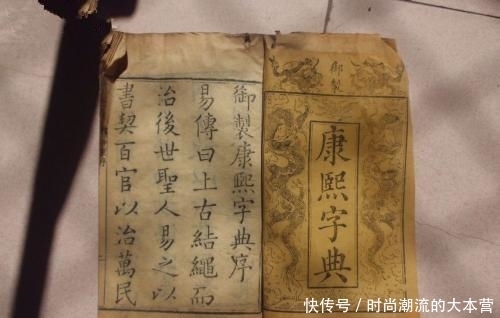 御製
康熙字典
御製康熙字典序
易傳曰上古結繩而
治後世聖人易之以
書契百官以治萬民
快传号 / 时尚潮流的大本营